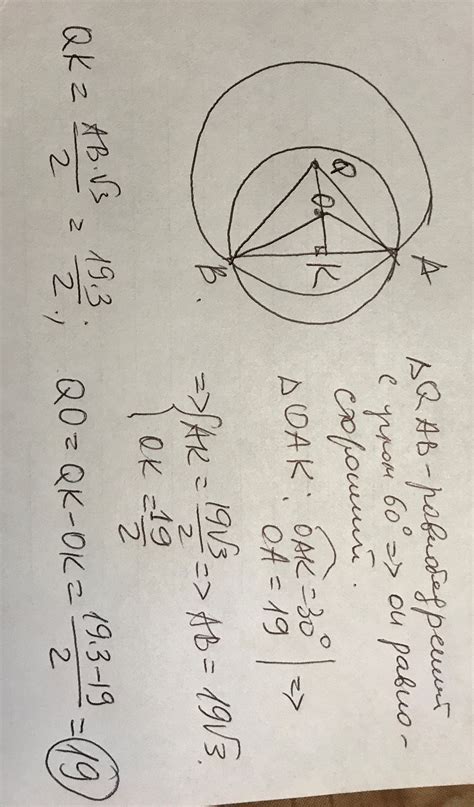 A
Q
O
K
B.
△QAB – равнобедренный
с углом 60° => он равно-
сторонний.
△OAK: OAK = 30°
OA = 19 | =>
=> { AK = 19√3/2 => AB = 19√3.
OK = 19/2
QK = AB·√3/2 = 19·3/2;
QO = QK – OK = 19·3–19/2 = 19